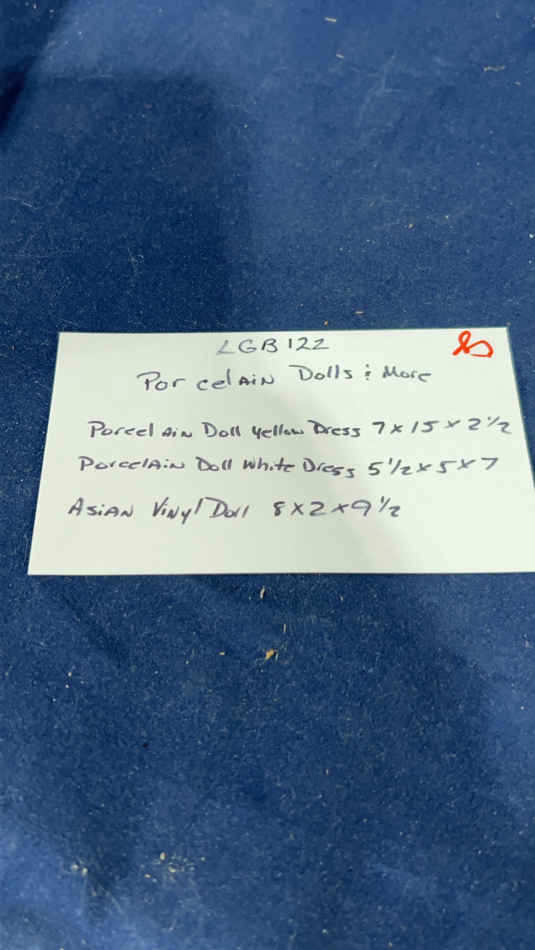 LGB122
Porcelain Dolls & More
Porcelain Doll Yellow Dress 7x15x2½
Porcelain Doll White Dress 5½x5x7
Asian Vinyl Doll 8x2x9½